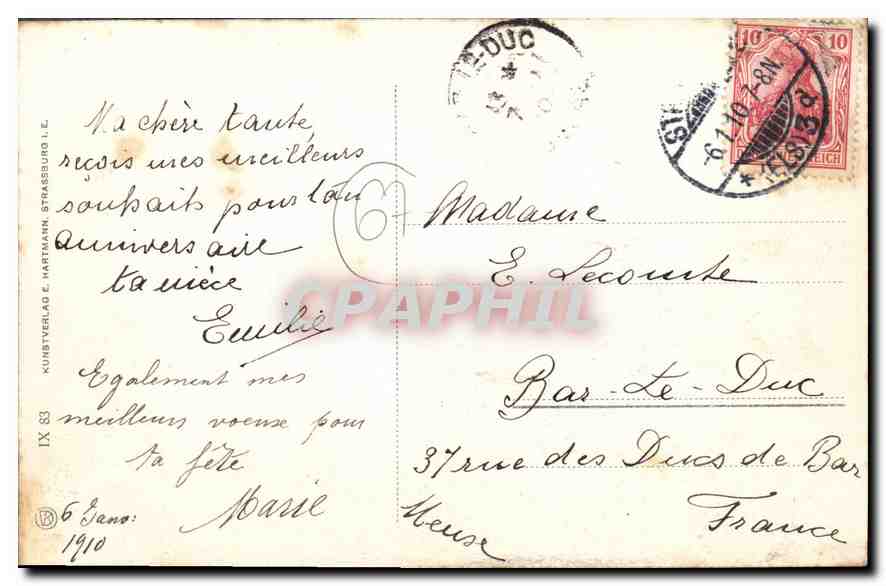 Ma chère tante,
reçois mes meilleurs
souhaits pour ton
anniversaire
ta nièce
Emilie
Egalement mes
meilleurs voeux pour
ta fête
Marie
6 Janv:
1910
KUNSTVERLAG E. HARTMANN, STRASSBURG I. E.
IX 83
63
LE-DUC
6.1.10.7-8N.
* (ELS) 3 d
10 10
REICH
Madame
E. Lecomte
Bar-Le-Duc
37 rue des Ducs de Bar
Meuse
France
CPAPHIL